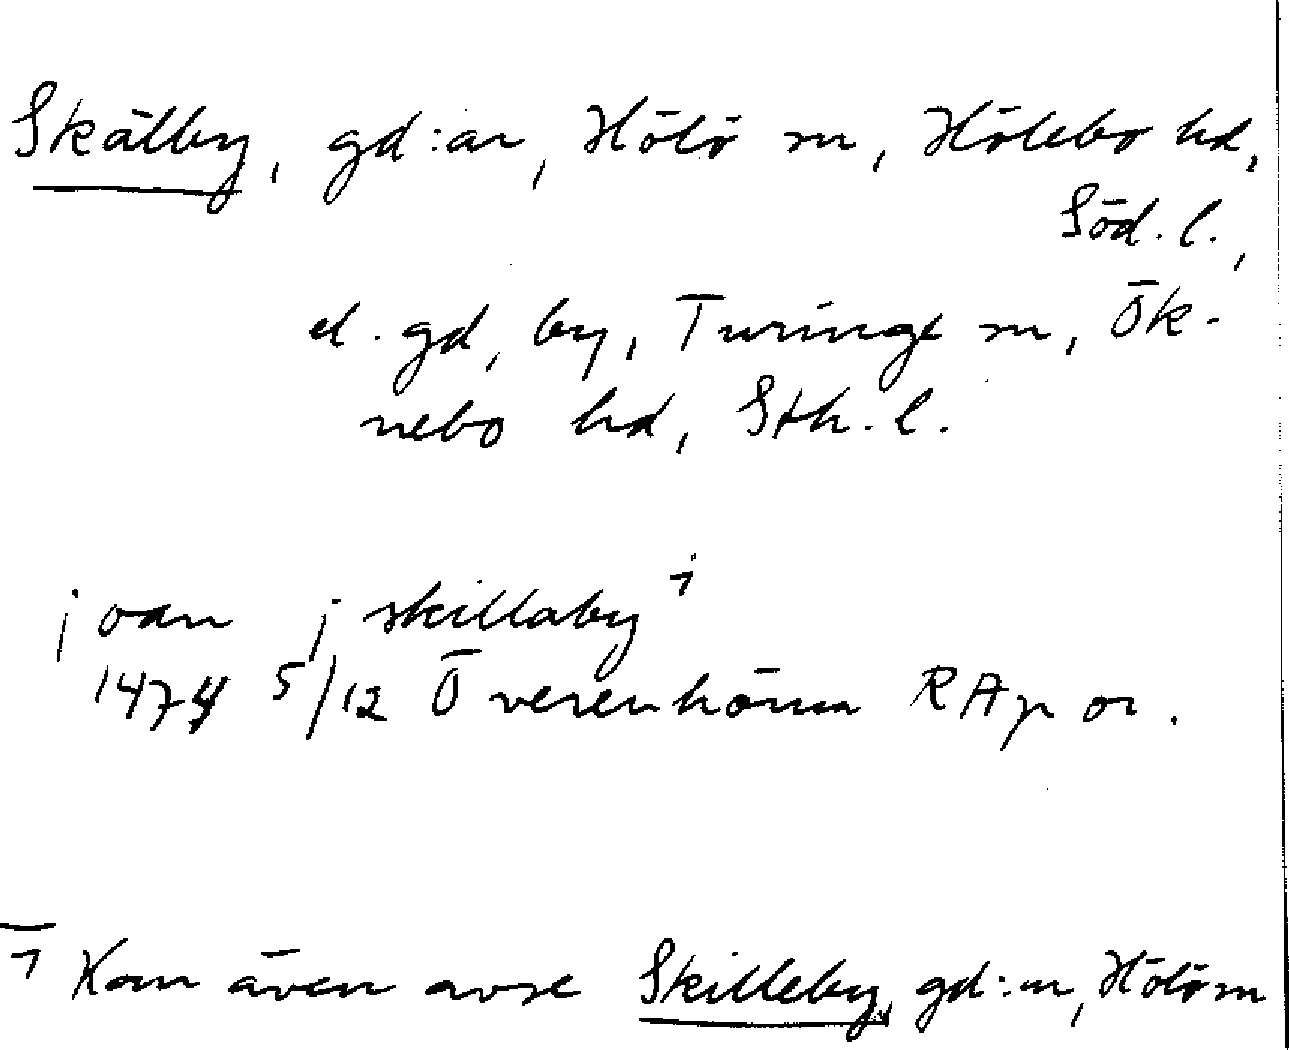 Skälby, gd:ar, Hölö sn, Hölebo hd,
Söd. l.,
el. gd, by, Turinge sn, Ök-
nebo hd, Sth. l.
joan j skillaby 1
1474 5/12 Överenhörna RAp or.
1 Kan även avse Skilleby, gd:ar, Hölö sn